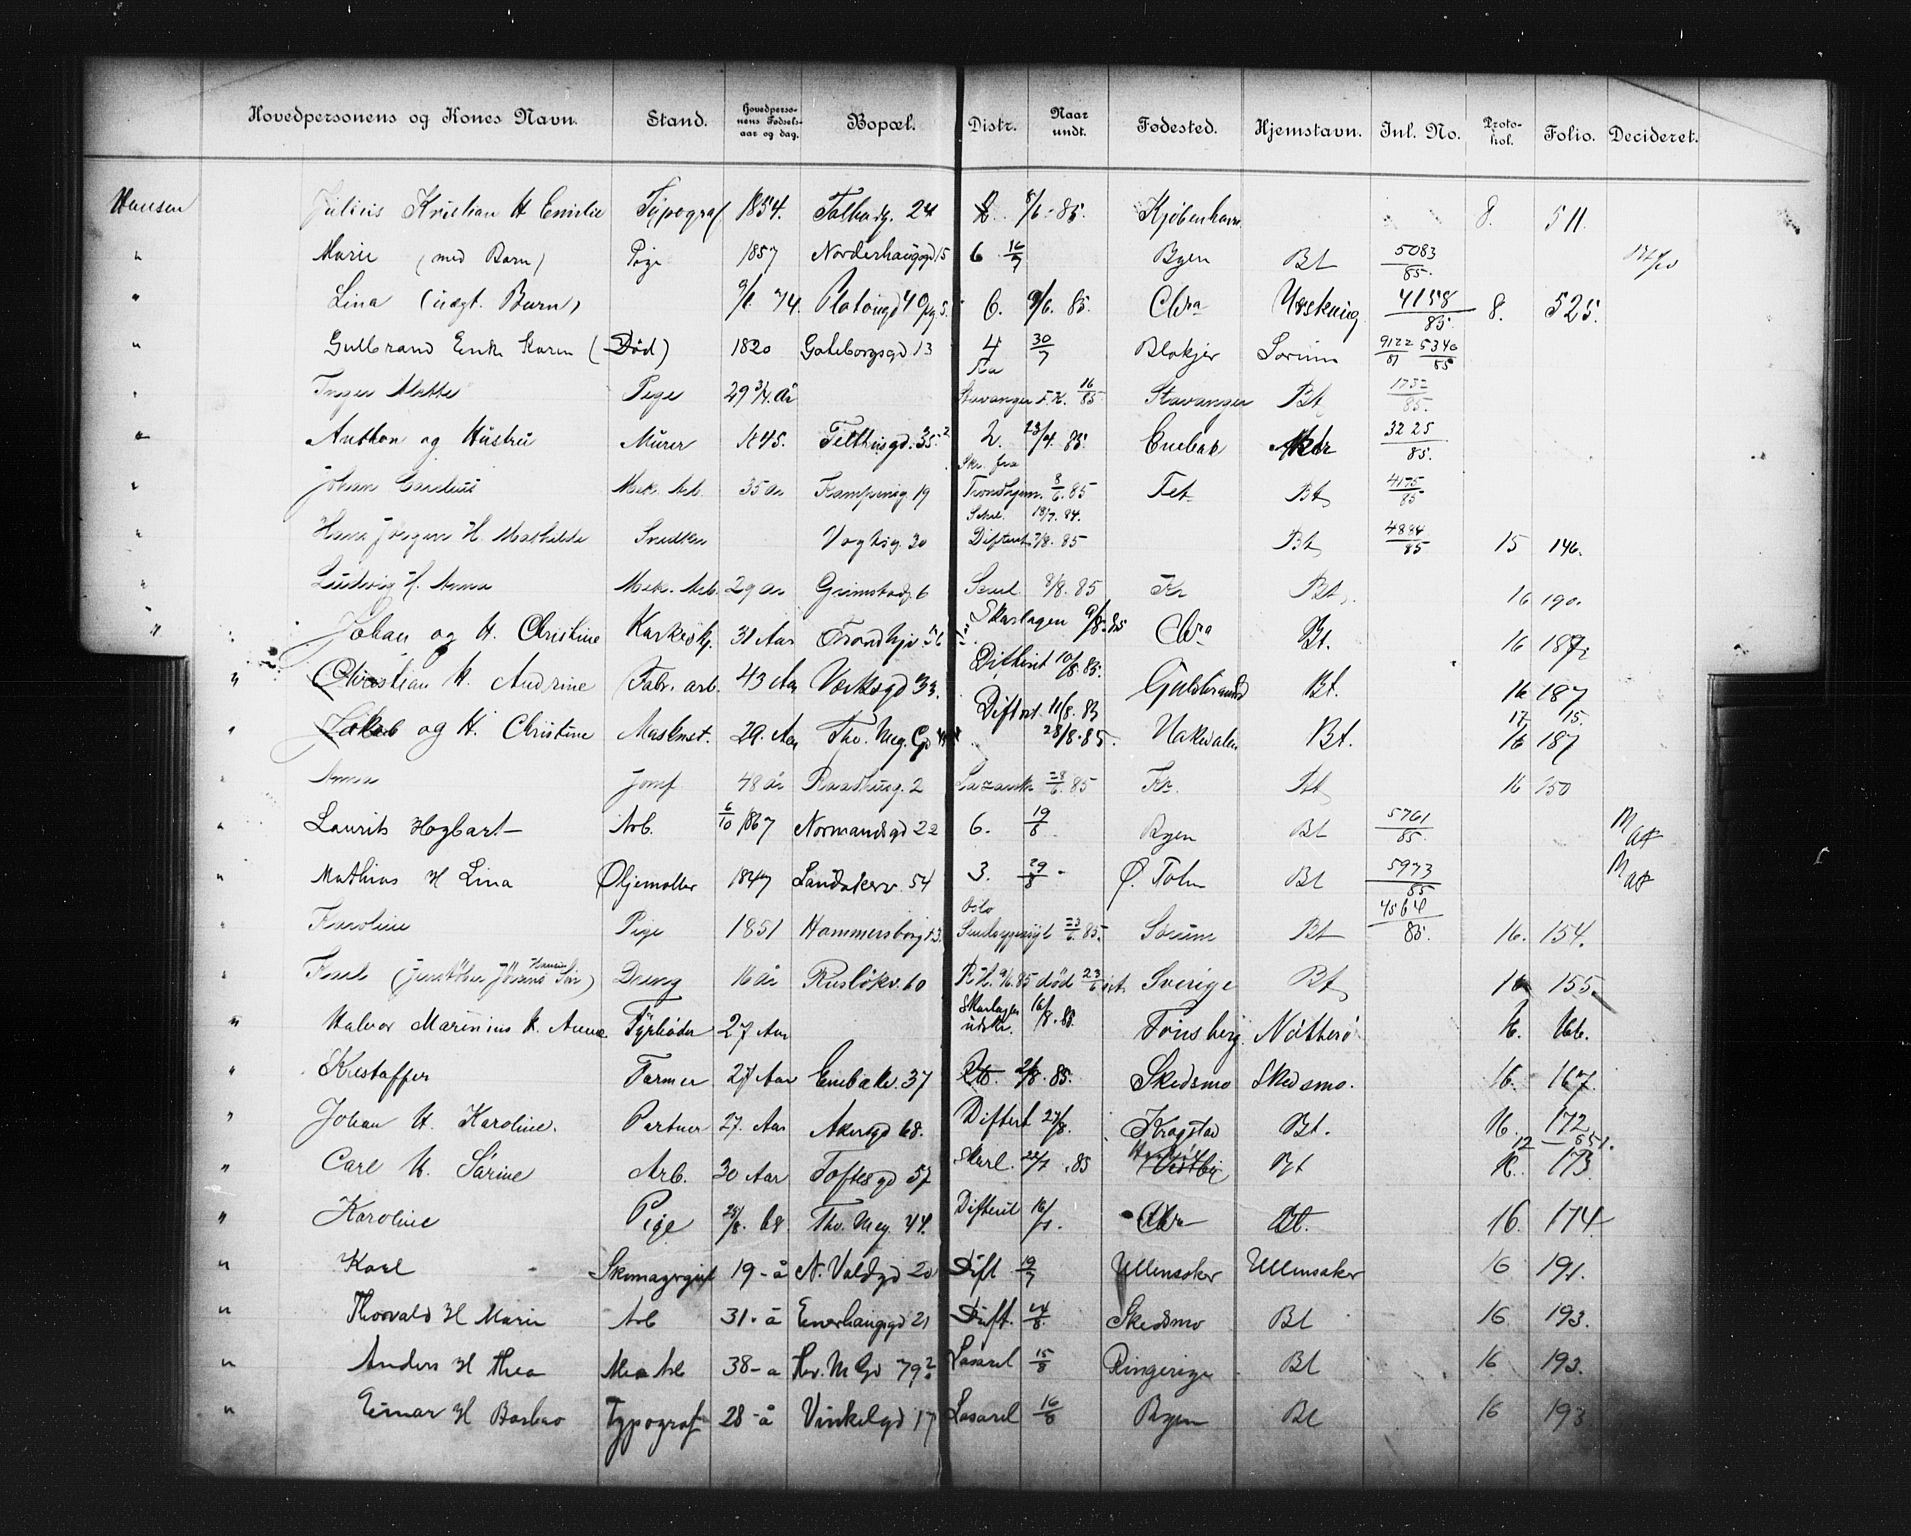 Hovedpersonens og Kones Navn. Stand. Hovedpersonens Fødselsaar og dag. Bopæl. Distr. Naar undt. Fødested. Hjemstavn. Inl. No. Protokol. Folio. Decideret.
Hansen Julius Kristian H Emilie Typograf 1854. 24 8/6 85. Kjøbenhavn 8. 511.
" Marie (med Barn) Pige 1857 Norderhaugsgd 15 6 16/7 Byen Bt 5083/85.
" Lina (uægt. Barn) 74. Platousgd 40 6. 9/6. 85. Chra Urskoug 4158/85. 8. 525.
" Gulbrand Enk Karen (Død) 1820 Gøteborgsgd 13 4 30/7 Blakjer Sørum 9122/81 5340/85
" Inger Mathe Pige 29 3/4 år Fra Stavanger F.K. 16/85 Stavanger Bt 1732/85.
" Anthon og Hustru Murer 1845. 35 2. 23/4. 85. Enebak Aker 3225/85.
" Johan Mek. Arb. 35 år Kampensg 19 Skr. fra Trondhjem 8/6. 85 Bt 4175/85
" Hans Jørgen H. Mathilde Snedker Vogtsg. 30 Skarl. 18/7. 84. Difterit 7/8. 85 Bt 4884/85 15 146.
" Ludvig H. Anna Mek. Arb. 29 år Grimstadg. 6 Scarl 8/8. 85 Kr Bt 16 190.
" Johan og H. Christine 31 Aar Trondhjv 5 Skarlagen 9/8. 85 Chra Bt. 16 187
" Christian H. Andrine Fabr. arb. 43 Aar Værksgd 33. Difterit 10/8. 85. Guldbrand Bt. 16 187
" Jakob og H. Christine Maskinst. 29. Aar Thv. Mey. Gd Difterit. 11/8. 85 28/8. 85. Hakedalen Bt. 17 15. 16 187
" Anna Jomf 48 år Raadhusg. 2 Lazareth 28/6. 85 Kr. Bt 16 150
" Laurits Hogbart Arb. 6/10 1867 Normandsgd 22 6. 19/8 Byen Bt 5761/85.
" Mathias H Lina Oljemøller 1847 Sandakerv. 54 3. 29/8 Ø. Toten Bt 5973/85
" Karoline Pige 1851 Hammersborg 13 Oslo Sindssygeasyl 23/6. 85. Sørum Bt 4564/85. 16. 154.
" Dreng 16 år Ruseløkv. 60 R.H. 9/6. 85 død 23/6 Sverige Bt 16 155.
" Halvor Marinius H. Anna Fyrbøder 27 Aar Skarlagen udskr. 16/8. 85 Tønsberg Nøtterø 16. 166.
" Kristoffer Farmer 27 Aar Enebakv. 37 2/8. 85. Skedsmo Skedsmo. 16. 167.
" Johan H. Karoline. Partner 27. Aar Akersgd 68. Difterit 27/8. Kragstad Bt. 16. 172
" Carl H. Sørine Arb. 30 Aar Toftesgd 57 Skarl. 22/7. 85 Vestby Bt 12 551. 16. 173.
" Karoline Pige 28/8. 68 Thv. Mey. 44. Difterit 16/7. Chra Bt. 16. 174
" Karl Skomagergut 19-å N. Voldgd 20 Dift. 19/7 Ullensaker Ullensaker 16 191.
" Thorvald H Marie Arb 31-å Enerhaugsgd 21 Dift. 14/8. Skedsmo Bt 16 193.
" Anders H Thea Mek Arb 38-å Thv. M Gd 79 Lasaret 15/8 Ringerige Bt 16 193.
" Einar H Barbro Typograf 28-å Vinkelgd 17 Lasaret 16/8 Byen Bt 16 193